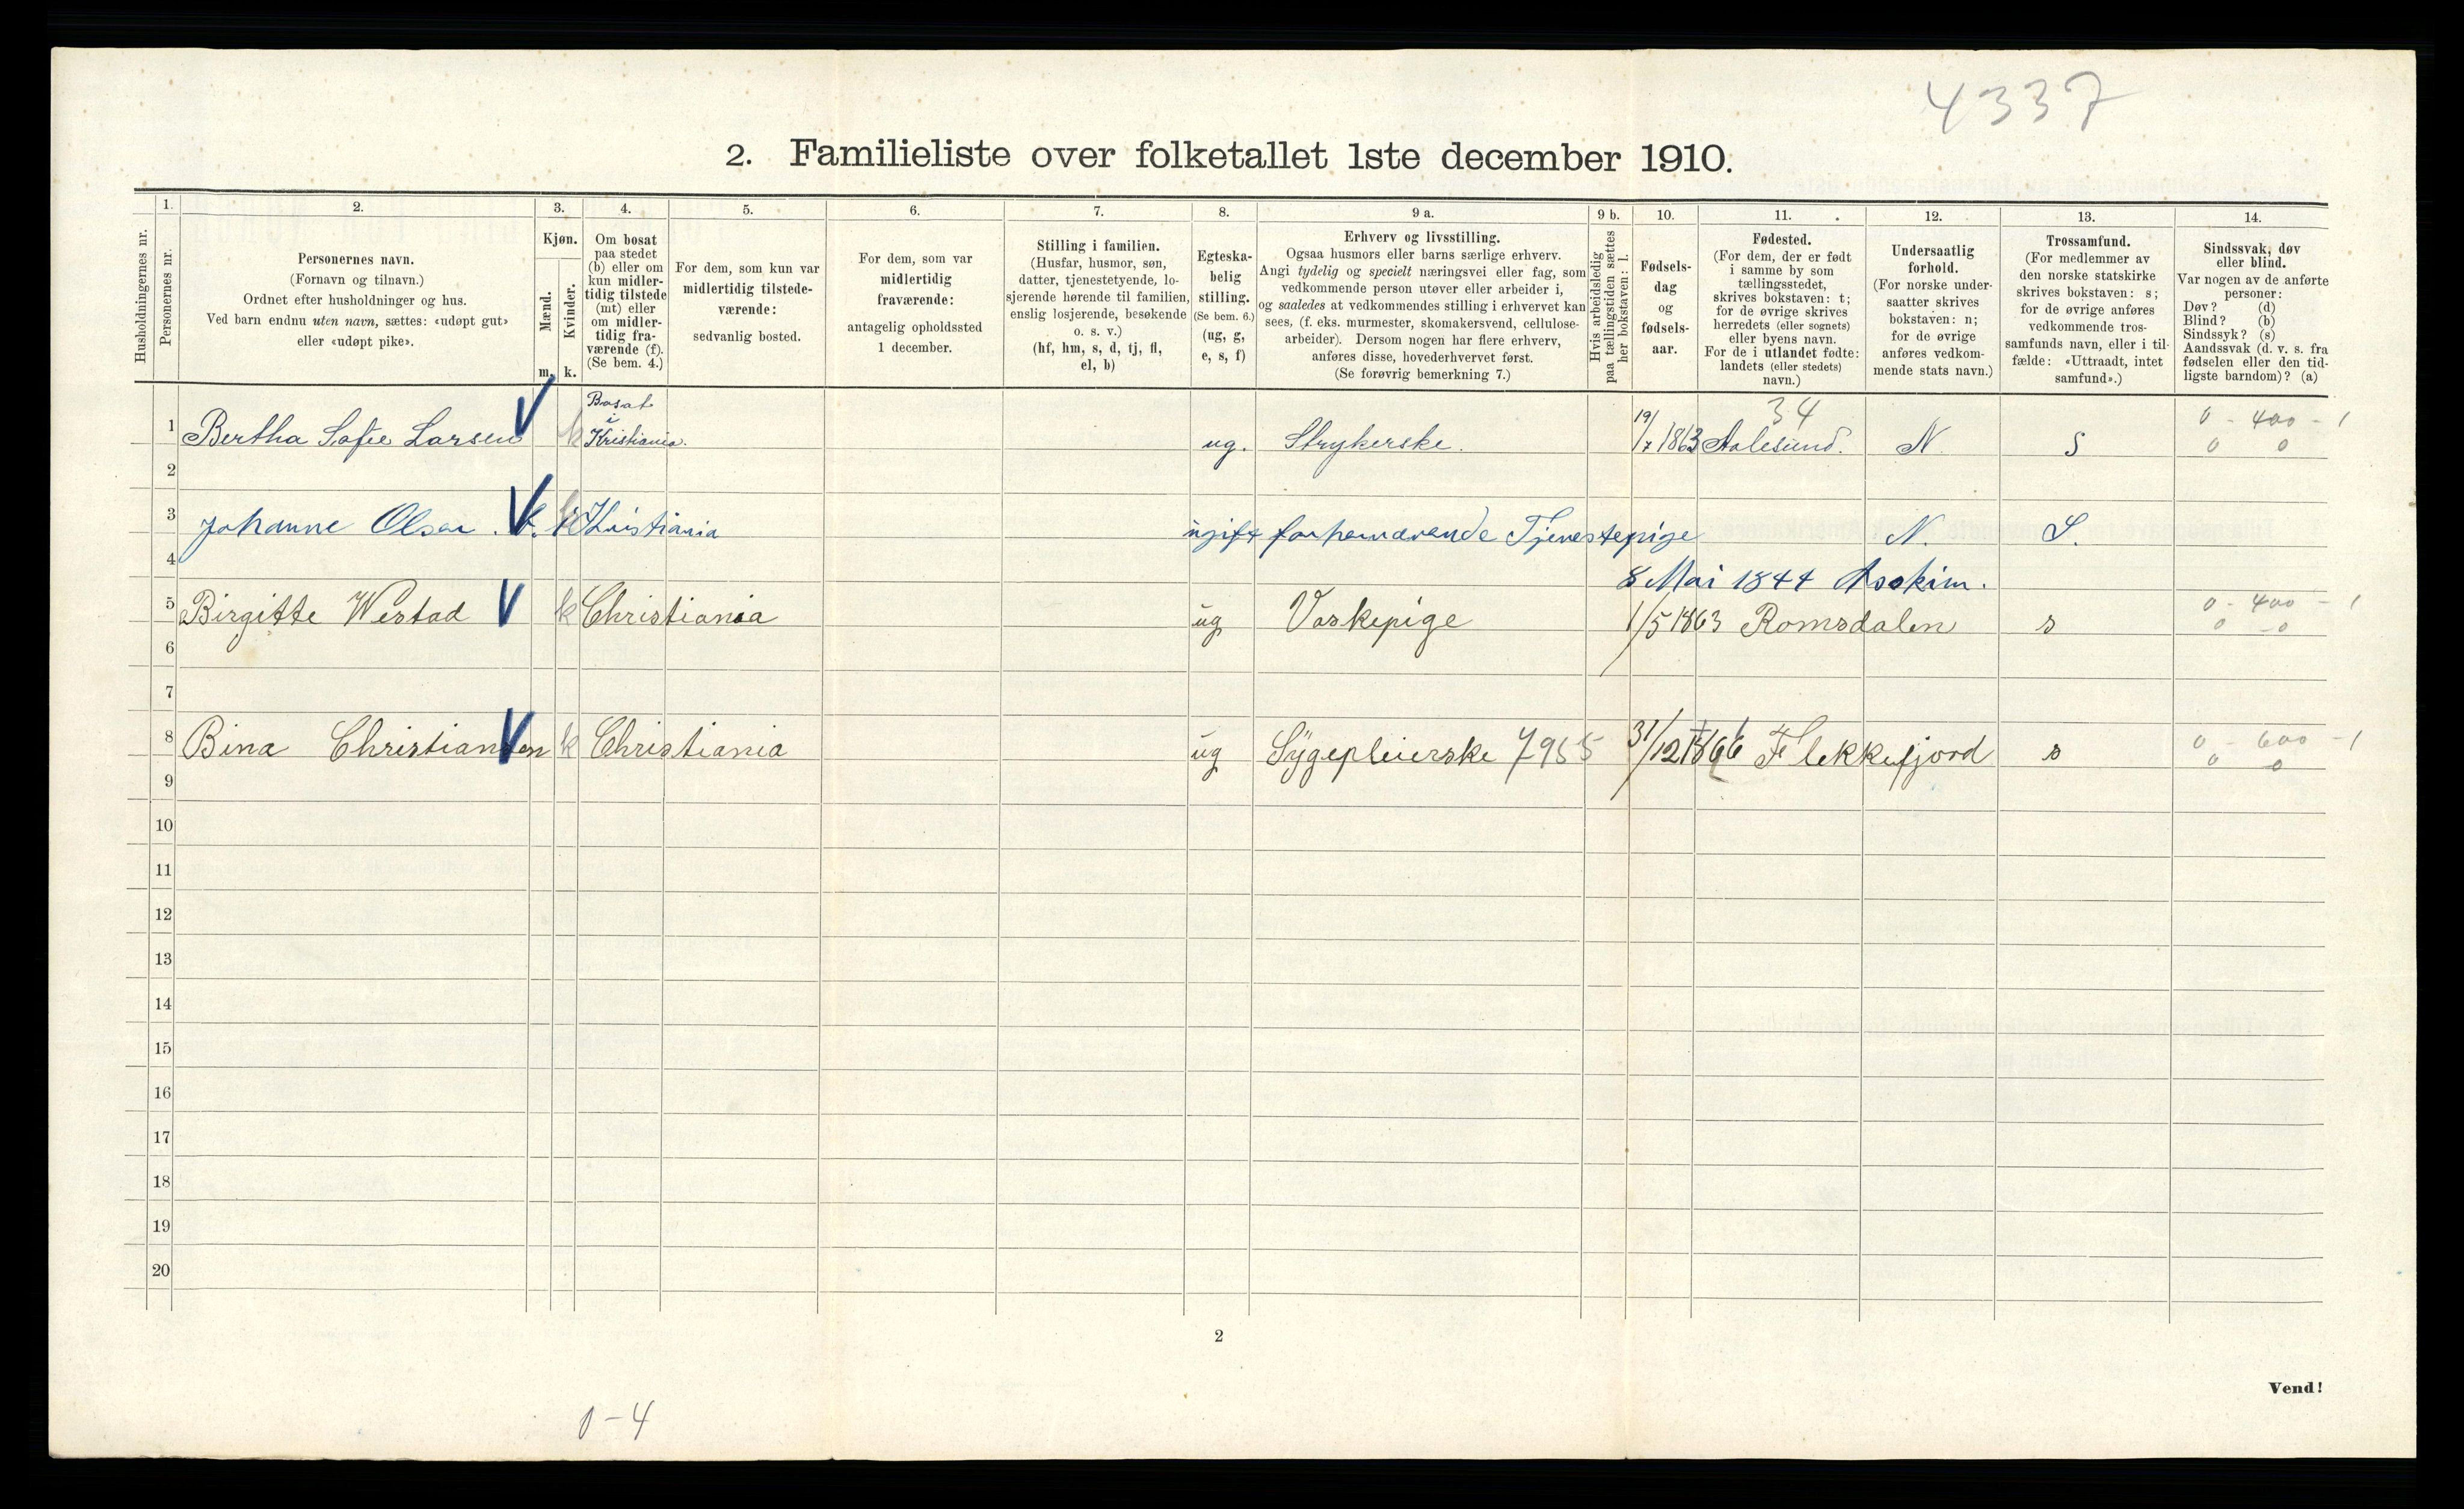 4337
2. Familieliste over folketallet 1ste december 1910.
Husholdningernes nr.
1.
Personernes nr.
2.
Personernes navn.
(Fornavn og tilnavn.)
Ordnet efter husholdninger og hus.
Ved barn endnu uten navn, sættes: «udøpt gut»
eller «udøpt pike».
3.
Kjøn.
Mænd.
Kvinder.
m. k.
4.
Om bosat
paa stedet
(b) eller om
kun midler-
tidig tilstede
(mt) eller
om midler-
tidig fra-
værende (f).
(Se bem. 4.)
5.
For dem, som kun var
midlertidig tilstede-
værende:
sedvanlig bosted.
6.
For dem, som var
midlertidig
fraværende:
antagelig opholdssted
1 december.
7.
Stilling i familien.
(Husfar, husmor, søn,
datter, tjenestetyende, lo-
sjerende hørende til familien,
enslig losjerende, besøkende
o. s. v.)
(hf, hm, s, d, tj, fl,
el, b)
8.
Egteska-
belig
stilling.
(Se bem. 6.)
(ug, g,
e, s, f)
9 a.
Erhverv og livsstilling.
Ogsaa husmors eller barns særlige erhverv.
Angi tydelig og specielt næringsvei eller fag, som
vedkommende person utøver eller arbeider i,
og saaledes at vedkommendes stilling i erhvervet kan
sees, (f. eks. murmester, skomakersvend, cellulose-
arbeider). Dersom nogen har flere erhverv,
anføres disse, hovederhvervet først.
(Se forøvrig bemerkning 7.)
9 b.
Hvis arbeidsledig
paa tællingstiden sættes
her bokstaven: l.
10.
Fødsels-
dag
og
fødsels-
aar.
11.
Fødested.
(For dem, der er født
i samme by som
tællingsstedet,
skrives bokstaven: t;
for de øvrige skrives
herredets (eller sognets)
eller byens navn.
For de i utlandet fødte:
landets (eller stedets)
navn.)
12.
Undersaatlig
forhold.
(For norske under-
saatter skrives
bokstaven: n;
for de øvrige
anføres vedkom-
mende stats navn.)
13.
Trossamfund.
(For medlemmer av
den norske statskirke
skrives bokstaven: s;
for de øvrige anføres
vedkommende tros-
samfunds navn, eller i til-
fælde: «Uttraadt, intet
samfund».)
14.
Sindssvak, døv
eller blind.
Var nogen av de anførte
personer:
Døv? (d)
Blind? (b)
Sindssyk? (s)
Aandssvak (d. v. s. fra
fødselen eller den tid-
ligste barndom)? (a)
1 Bertha Sofie Larsen V k Bosat i Kristiania. ug. Strykerske. 19/7 1863 34 Aalesund. N. S 0 - 400 - 1
0 0
2
3 Johanne Olsen. V k Kristiania ugift forhenværende Tjenestepige N. S.
4 8 Mai 1844 Askim.
5 Birgitte Westad V k Christiania ug Vaskepige 1/5 1863 Romsdalen s 0 - 400 - 1
0 - 0
6
7
8 Bina Christiansen V k Christiania ug Sygepleierske 7955 31/12 1866 Flekkefjord s 0 - 600 - 1
0 0
9
10
11
12
13
14
15
16
17
18
19
20
2
Vend!
0-4